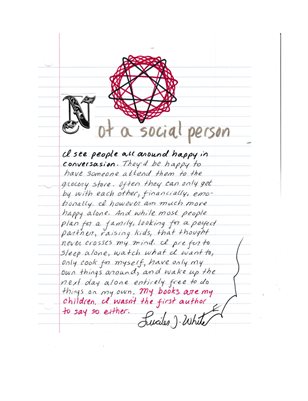 Not a social person
I see people all around happy in
conversasion. They'd be happy to
have someone attend them to the
grocery store. Often they can only get
by with each other, financially, emo-
tionally. I however am much more
happy alone. And while most people
plan for a family, looking for a perfect
partner, raising kids, that thought
never crosses my mind. I prefer to
sleep alone, watch what I want to,
only cook for myself, have only my
own things around, and wake up the
next day alone entirely free to do
things on my own. My books are my
children. I wasn't the first author
to say so either.
Lucilei J. White